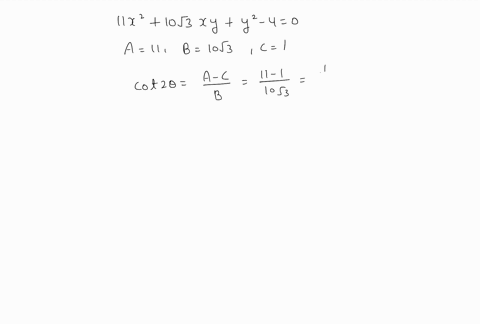 11x² + 10√3 xy + y² - 4 = 0
A = 11, B = 10√3, C = 1
cot 2θ = (A-C)/B = (11-1)/(10√3) =